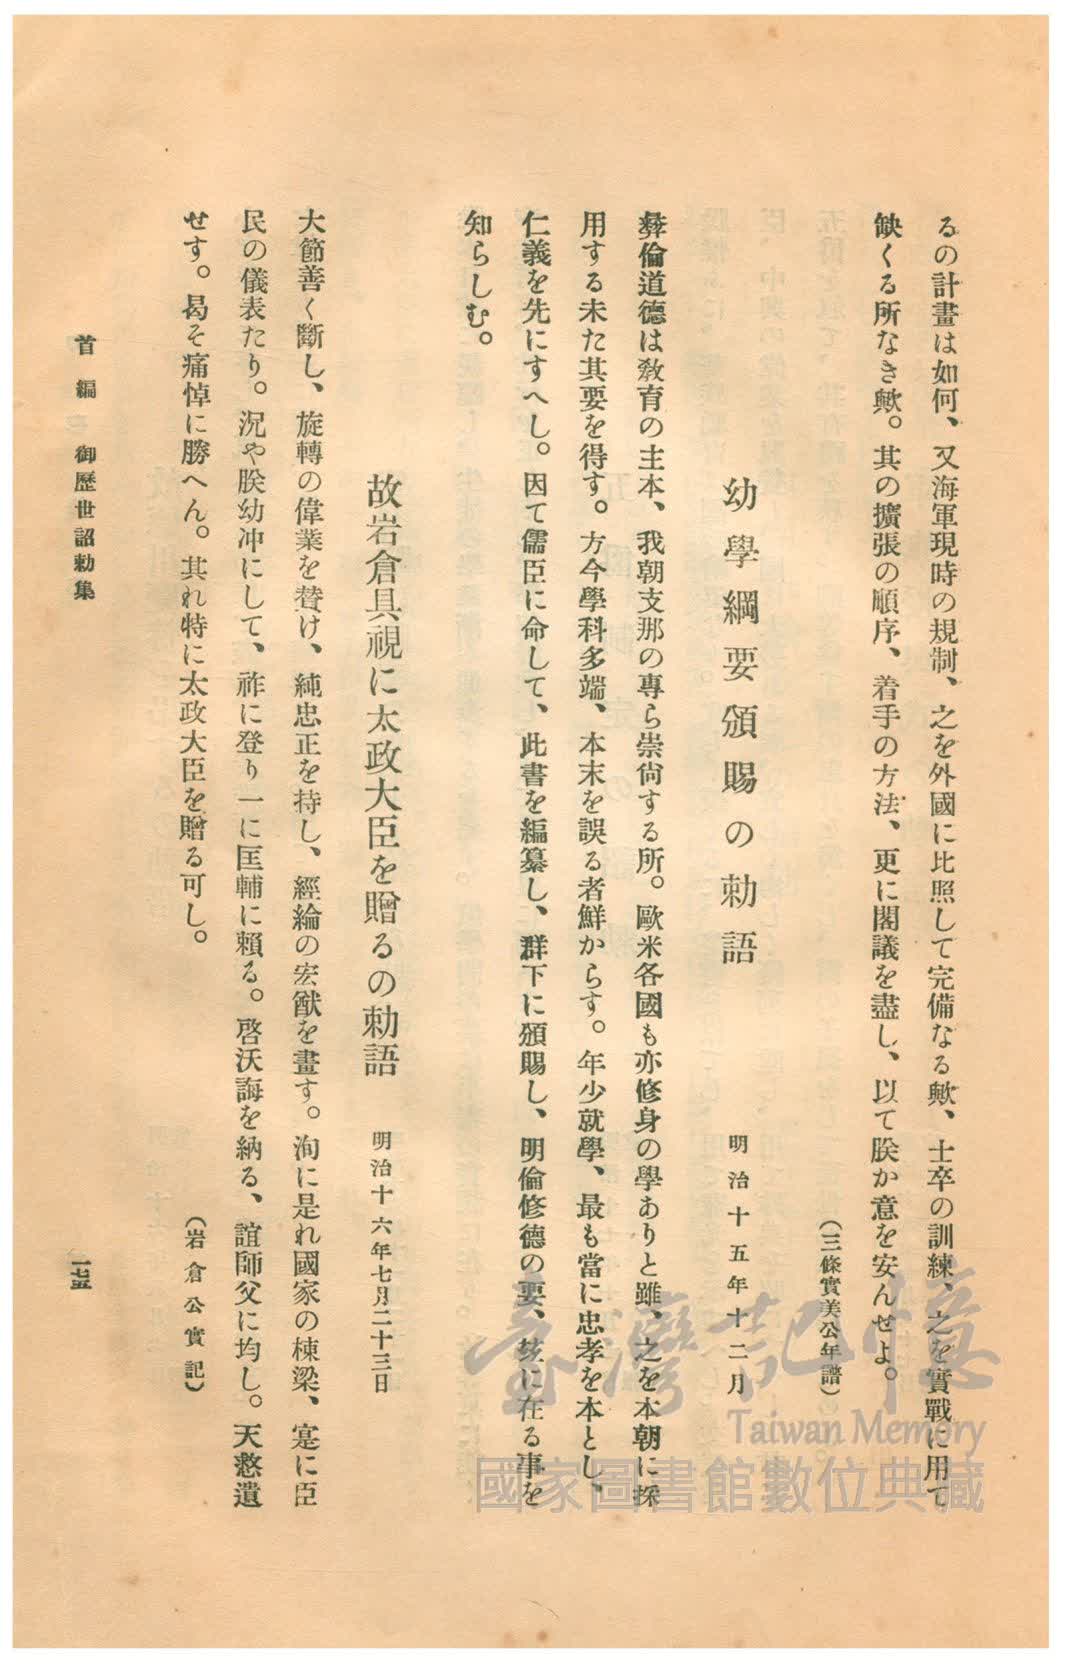 るの計畫は如何、又海軍現時の規制、之を外國に比照して完備なる歟、士卒の訓練、之を實戰に用て
缺くる所なき歟。其の擴張の順序、着手の方法、更に閣議を盡し、以て朕か意を安んせよ。
(三條實美公年譜)
幼學綱要頒賜の勅語 明治十五年十二月
彝倫道德は敎育の主本、我朝支那の專ら崇尙する所。歐米各國も亦修身の學ありと雖、之を本朝に採
用する未た其要を得す。方今學科多端、本末を誤る者鮮からす。年少就學、最も當に忠孝を本とし、
仁義を先にすへし。因て儒臣に命して、此書を編纂し、群下に頒賜し、明倫修德の要、玆に在る事を
知らしむ。
故岩倉具視に太政大臣を贈るの勅語 明治十六年七月二十三日
大節善く斷し、旋轉の偉業を贊け、純忠正を持し、經綸の宏猷を畫す。洵に是れ國家の棟梁、寔に臣
民の儀表たり。況や朕幼冲にして、祚に登り一に匡輔に賴る。啓沃誨を納る、誼師父に均し。天憖遺
せす。曷そ痛悼に勝へん。其れ特に太政大臣を贈る可し。
(岩倉公實記)
首編 御歷世詔勅集 一七五
臺灣記憶
Taiwan Memory
國家圖書館數位典藏